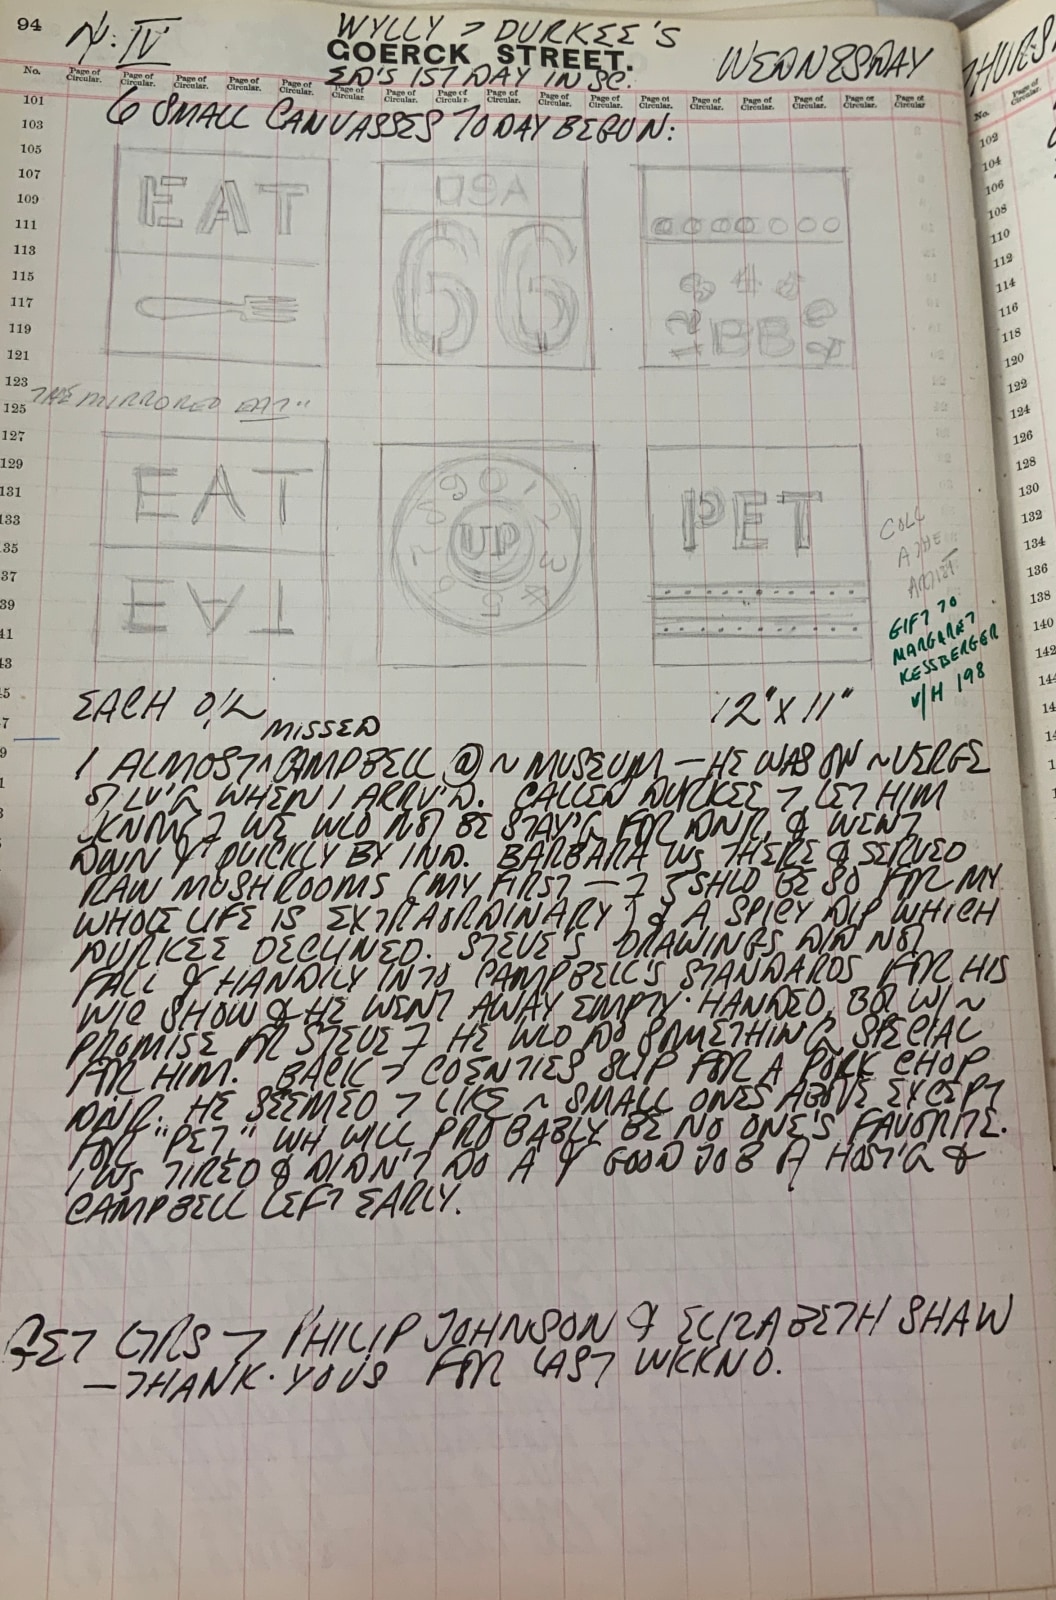 94
IV
WYLLY > DURKEE'S
GOERCK STREET.
WEDNESDAY
ED'S 1ST DAY IN SC.
No. Page of Circular. Page of Circular. Page of Circular. Page of Circular. Page of Circular. Page of Circular. Page of Circular. Page of Circular. Page of Circular. Page of Circular. Page of Circular. Page of Circular. Page of Circular. Page of Circular. Page of Circular. Page of Circular. Page of Circular.
6 SMALL CANVASSES TODAY BEGUN:
101
103
105
107
109
111
113
115
117
119
121
123
125
127
129
131
133
135
EAT
USA
66
BB
"THE MIRRORED EAT"
EAT
EAT
UP
PET
COLL
THE
ARTIST
GIFT TO
MARGARET
KESSBERGER
V/H 198
EACH O/L
12" X 11"
MISSED
I ALMOST ^ CAMPBELL @ ~ MUSEUM — HE WAS ON ~ VERGE
OF LV'G WHEN I ARRV'D. CALLED DURKEE > LET HIM
KNOW 7 WE WLD NOT BE STAY'G FOR DNR, & WENT
DWN & QUICKLY BY IND. BARBARA WS THERE & SERVED
RAW MUSHROOMS (MY FIRST — 7 SHLD BE SO FOR MY
WHOLE LIFE IS EXTRAORDINARY) & A SPICY DIP WHICH
DURKEE DECLINED. STEVE'S DRAWINGS DID NOT
FALL & HANDILY INTO CAMPBELL'S STANDARDS FOR HIS
SHOW & HE WENT AWAY EMPTY-HANDED, BUT W/ ~
PROMISE FOR STEVE 7 HE WLD DO SOMETHING SPECIAL
FOR HIM. BACK > COENTIES SLIP FOR A PORK CHOP
DNR. HE SEEMED > LIKE ~ SMALL ONES ABOVE EXCEPT
FOR "PET," WH WILL PROBABLY BE NO ONE'S FAVORITE.
I WS TIRED & DIDN'T DO A & GOOD JOB A HOST'G &
CAMPBELL LEFT EARLY.
LTRS > PHILIP JOHNSON & ELIZABETH SHAW
— THANK-YOUS FOR LAST WKKND.
THURS
No. Page of Circular.
102
104
106
108
110
112
114
116
118
120
122
124
126
128
130
132
134
136
138
140
142